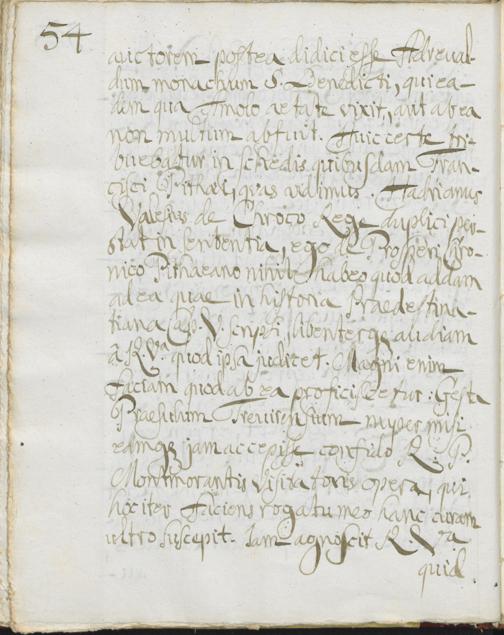 54
auctorem postea didici esse Adreval-
dum monachum S. Benedicti, qui ea-
dem qua Aimoio aetate vixit, aut ab ea
non multum abfuit. Huic certe tri-
buebatur in schedis quibusdam Fran-
cisci Pithaei, quas vidimus. Hadrianus
Valesius de Chroco Rege duplici per-
stat in sententia, ego de Prosperi Chro-
nico Pithaeano nihil habeo quod addam
ad ea quae in historia Praedestina-
tiana Cap. V. scripsi, libenterque audiam
à R. Va. quod ipsa judicet. Magni enim
faciam quod ab ea proficiscetur. Gesta
Praesulum Trevirensium nuper misi
eamque jam accepisse confido R. P.
Montmorantis Visitatoris opera, qui
hoc iter faciens rogatu meo hanc curam
ultro suscepit. Iam agnoscit R. Va.
quid